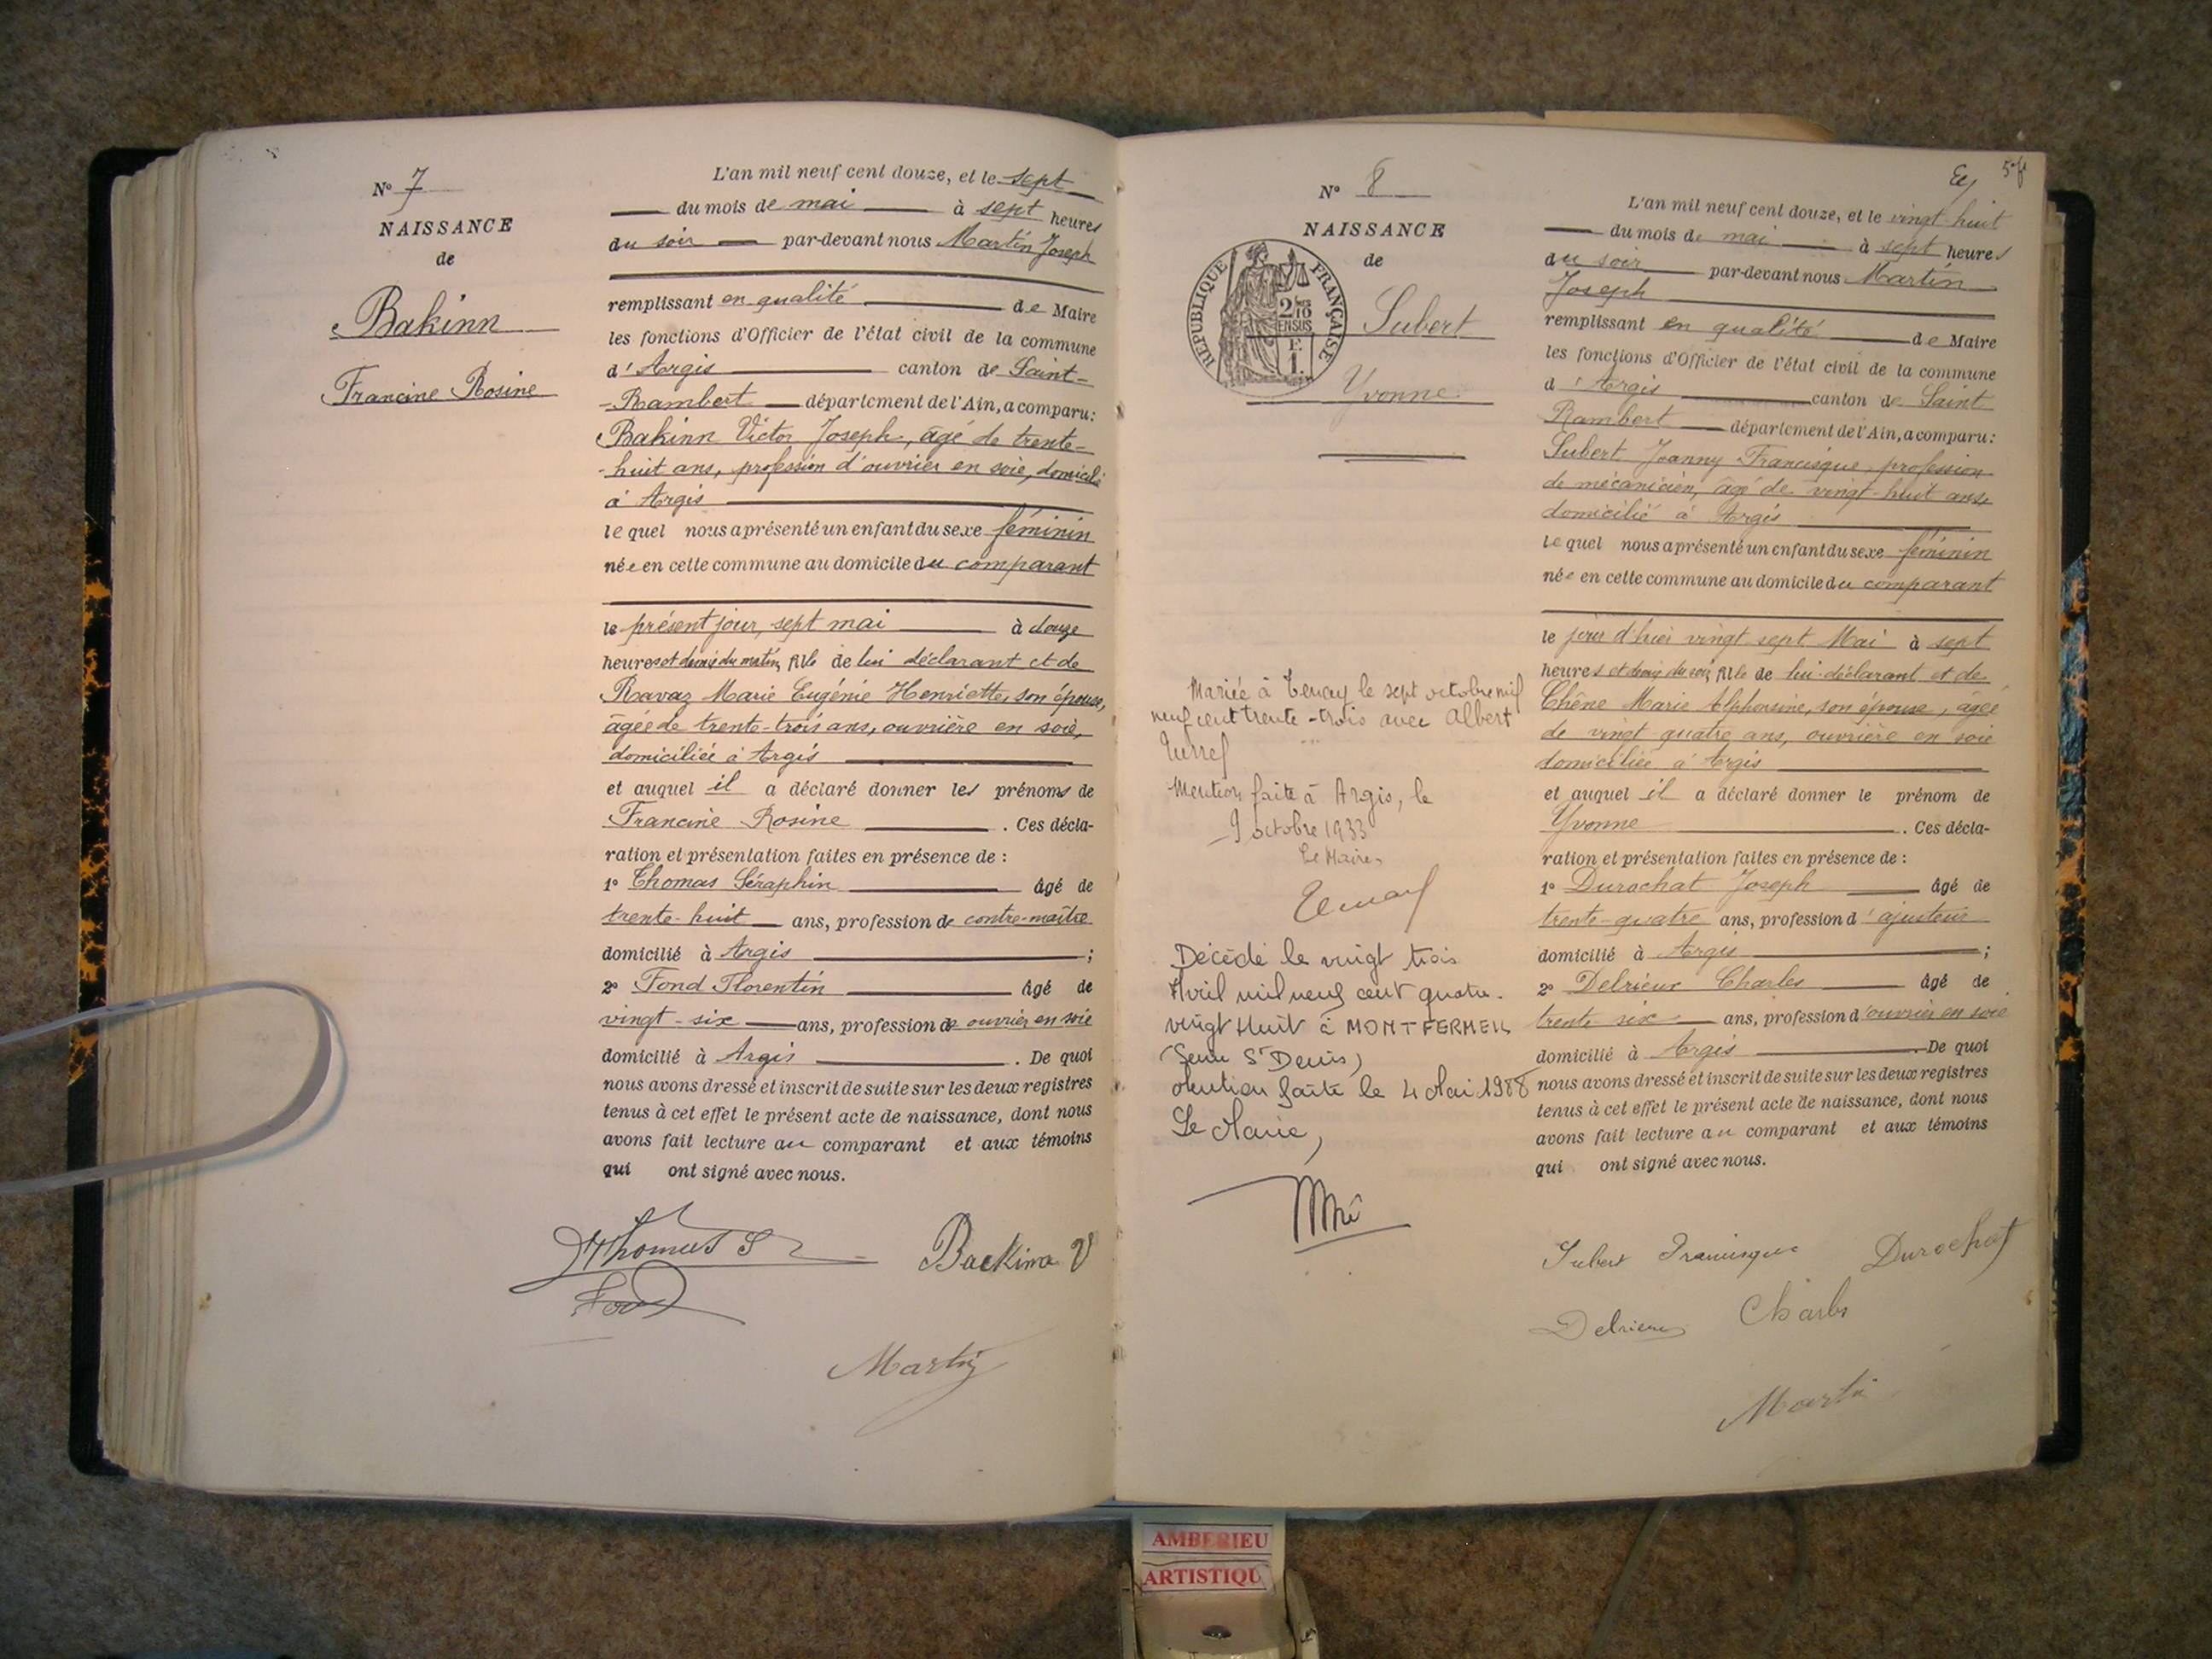 N° 7
NAISSANCE
de
Bakinn
Francine Rosine
L'an mil neuf cent douze, et le sept
du mois de mai à sept heures
du soir par-devant nous Martin Joseph
remplissant en qualité de Maire
les fonctions d'Officier de l'état civil de la commune
d'Argis canton de Saint-
-Rambert département de l'Ain, a comparu:
Bakinn Victor Joseph, âgé de trente-
-huit ans, profession d'ouvrier en soie, domicilié
à Argis
le quel nous a présenté un enfant du sexe féminin
née en cette commune au domicile du comparant
le présent jour, sept mai à douze
heures et demie du matin, fille de lui déclarant et de
Ravaz Marie Eugénie Henriette, son épouse,
âgée de trente-trois ans, ouvrière en soie,
domiciliée à Argis
et auquel il a déclaré donner les prénoms de
Francine Rosine . Ces décla-
ration et présentation faites en présence de :
1° Thomas Séraphin âgé de
trente-huit ans, profession de contre-maître
domicilié à Argis ;
2° Fond Florentin âgé de
vingt-six ans, profession de ouvrier en soie
domicilié à Argis . De quoi
nous avons dressé et inscrit de suite sur les deux registres
tenus à cet effet le présent acte de naissance, dont nous
avons fait lecture au comparant et aux témoins
qui ont signé avec nous.
Thomas S
Backinn V
Fond
Martin
5 f
N° 8
NAISSANCE
de
RÉPUBLIQUE FRANÇAISE
2/10
EN SUS
E.
1.
Subert
Yvonne
Mariée à Tenay le sept octobre mil
neuf cent trente-trois avec Albert
Mention faite à Argis, le
9 octobre 1933
Le Maire,
Décédé le vingt trois
Avril mil neuf cent quatre.
vingt Huit à MONTFERMEIL
(Seine St Denis)
Mention faite le 4 Mai 1988
Le Maire,
L'an mil neuf cent douze, et le vingt-huit
du mois de mai à sept heures
du soir par-devant nous Martin
Joseph
remplissant en qualité de Maire
les fonctions d'Officier de l'état civil de la commune
d'Argis canton de Saint
Rambert département de l'Ain, a comparu:
Subert Joanny Francisque, profession
de mécanicien, âgé de vingt-huit ans,
domicilié à Argis
le quel nous a présenté un enfant du sexe féminin
née en cette commune au domicile du comparant
le jour d'hier vingt sept Mai à sept
heures et demie du soir, fille de lui déclarant et de
Chêne Marie Alphonsine, son épouse, âgée
de vingt-quatre ans, ouvrière en soie
domiciliée à Argis
et auquel il a déclaré donner le prénom de
Yvonne . Ces décla-
ration et présentation faites en présence de :
1° Durochat Joseph âgé de
trente-quatre ans, profession d'ajusteur
domicilié à Argis ;
2° Delrieux Charles âgé de
trente six ans, profession d'ouvrier en soie
domicilié à Argis . De quoi
nous avons dressé et inscrit de suite sur les deux registres
tenus à cet effet le présent acte de naissance, dont nous
avons fait lecture au comparant et aux témoins
qui ont signé avec nous.
Subert Francisque
Durochat
Delrieux Charles
Martin
AMBERIEU
ARTISTIQU